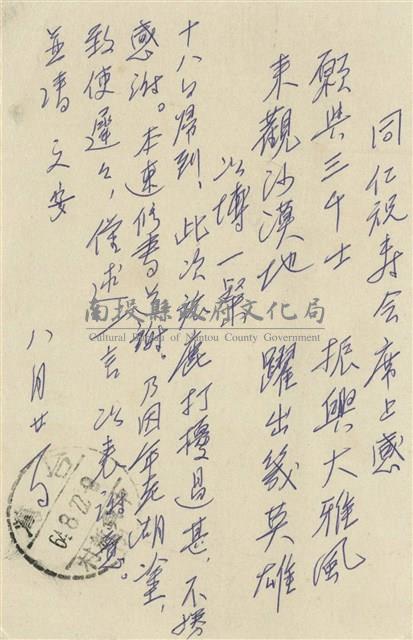 同仁祝寿会席上感
願與三千士 振興大雅風
来觀沙漠地 躍出幾英雄
以博一粲
十八日帰到,此次於鹿打擾過甚,不勝
感謝。本連修書道謝。乃因年老湖塗,
致使遲々,僅述一言以表謝意。
並請 文安
八月廿一日
南投縣政府文化局
Cultural Bureau of Nantou County Government
64.8.22.9